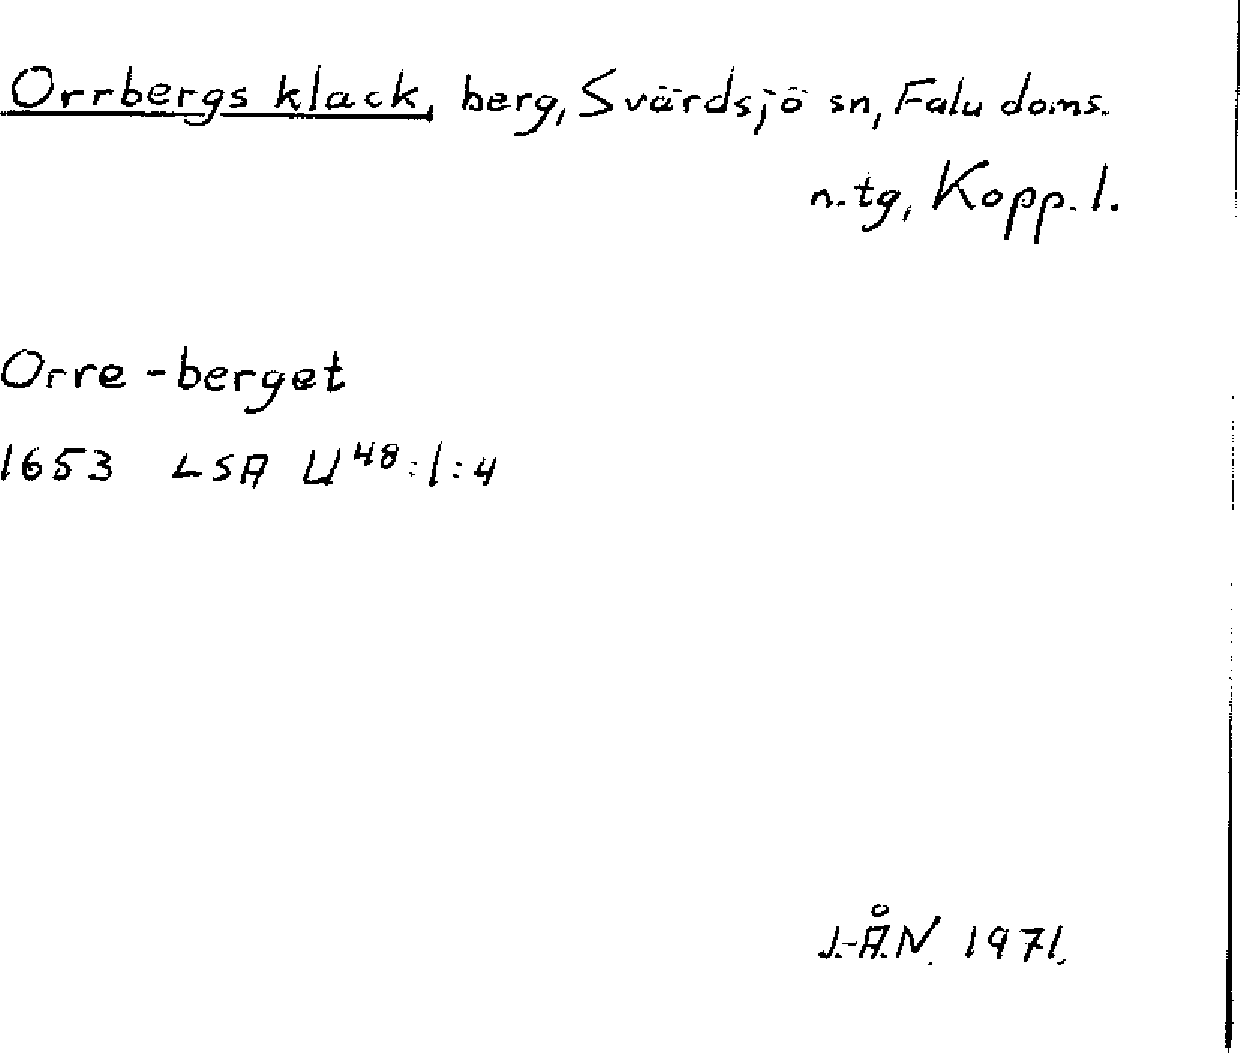 Orrbergs klack, berg, Svärdsjö sn, Falu doms.
n. tg, Kopp. l.
Orre - berget
1653 LSA U⁴⁸:1:4
J.-Å.N. 1971.